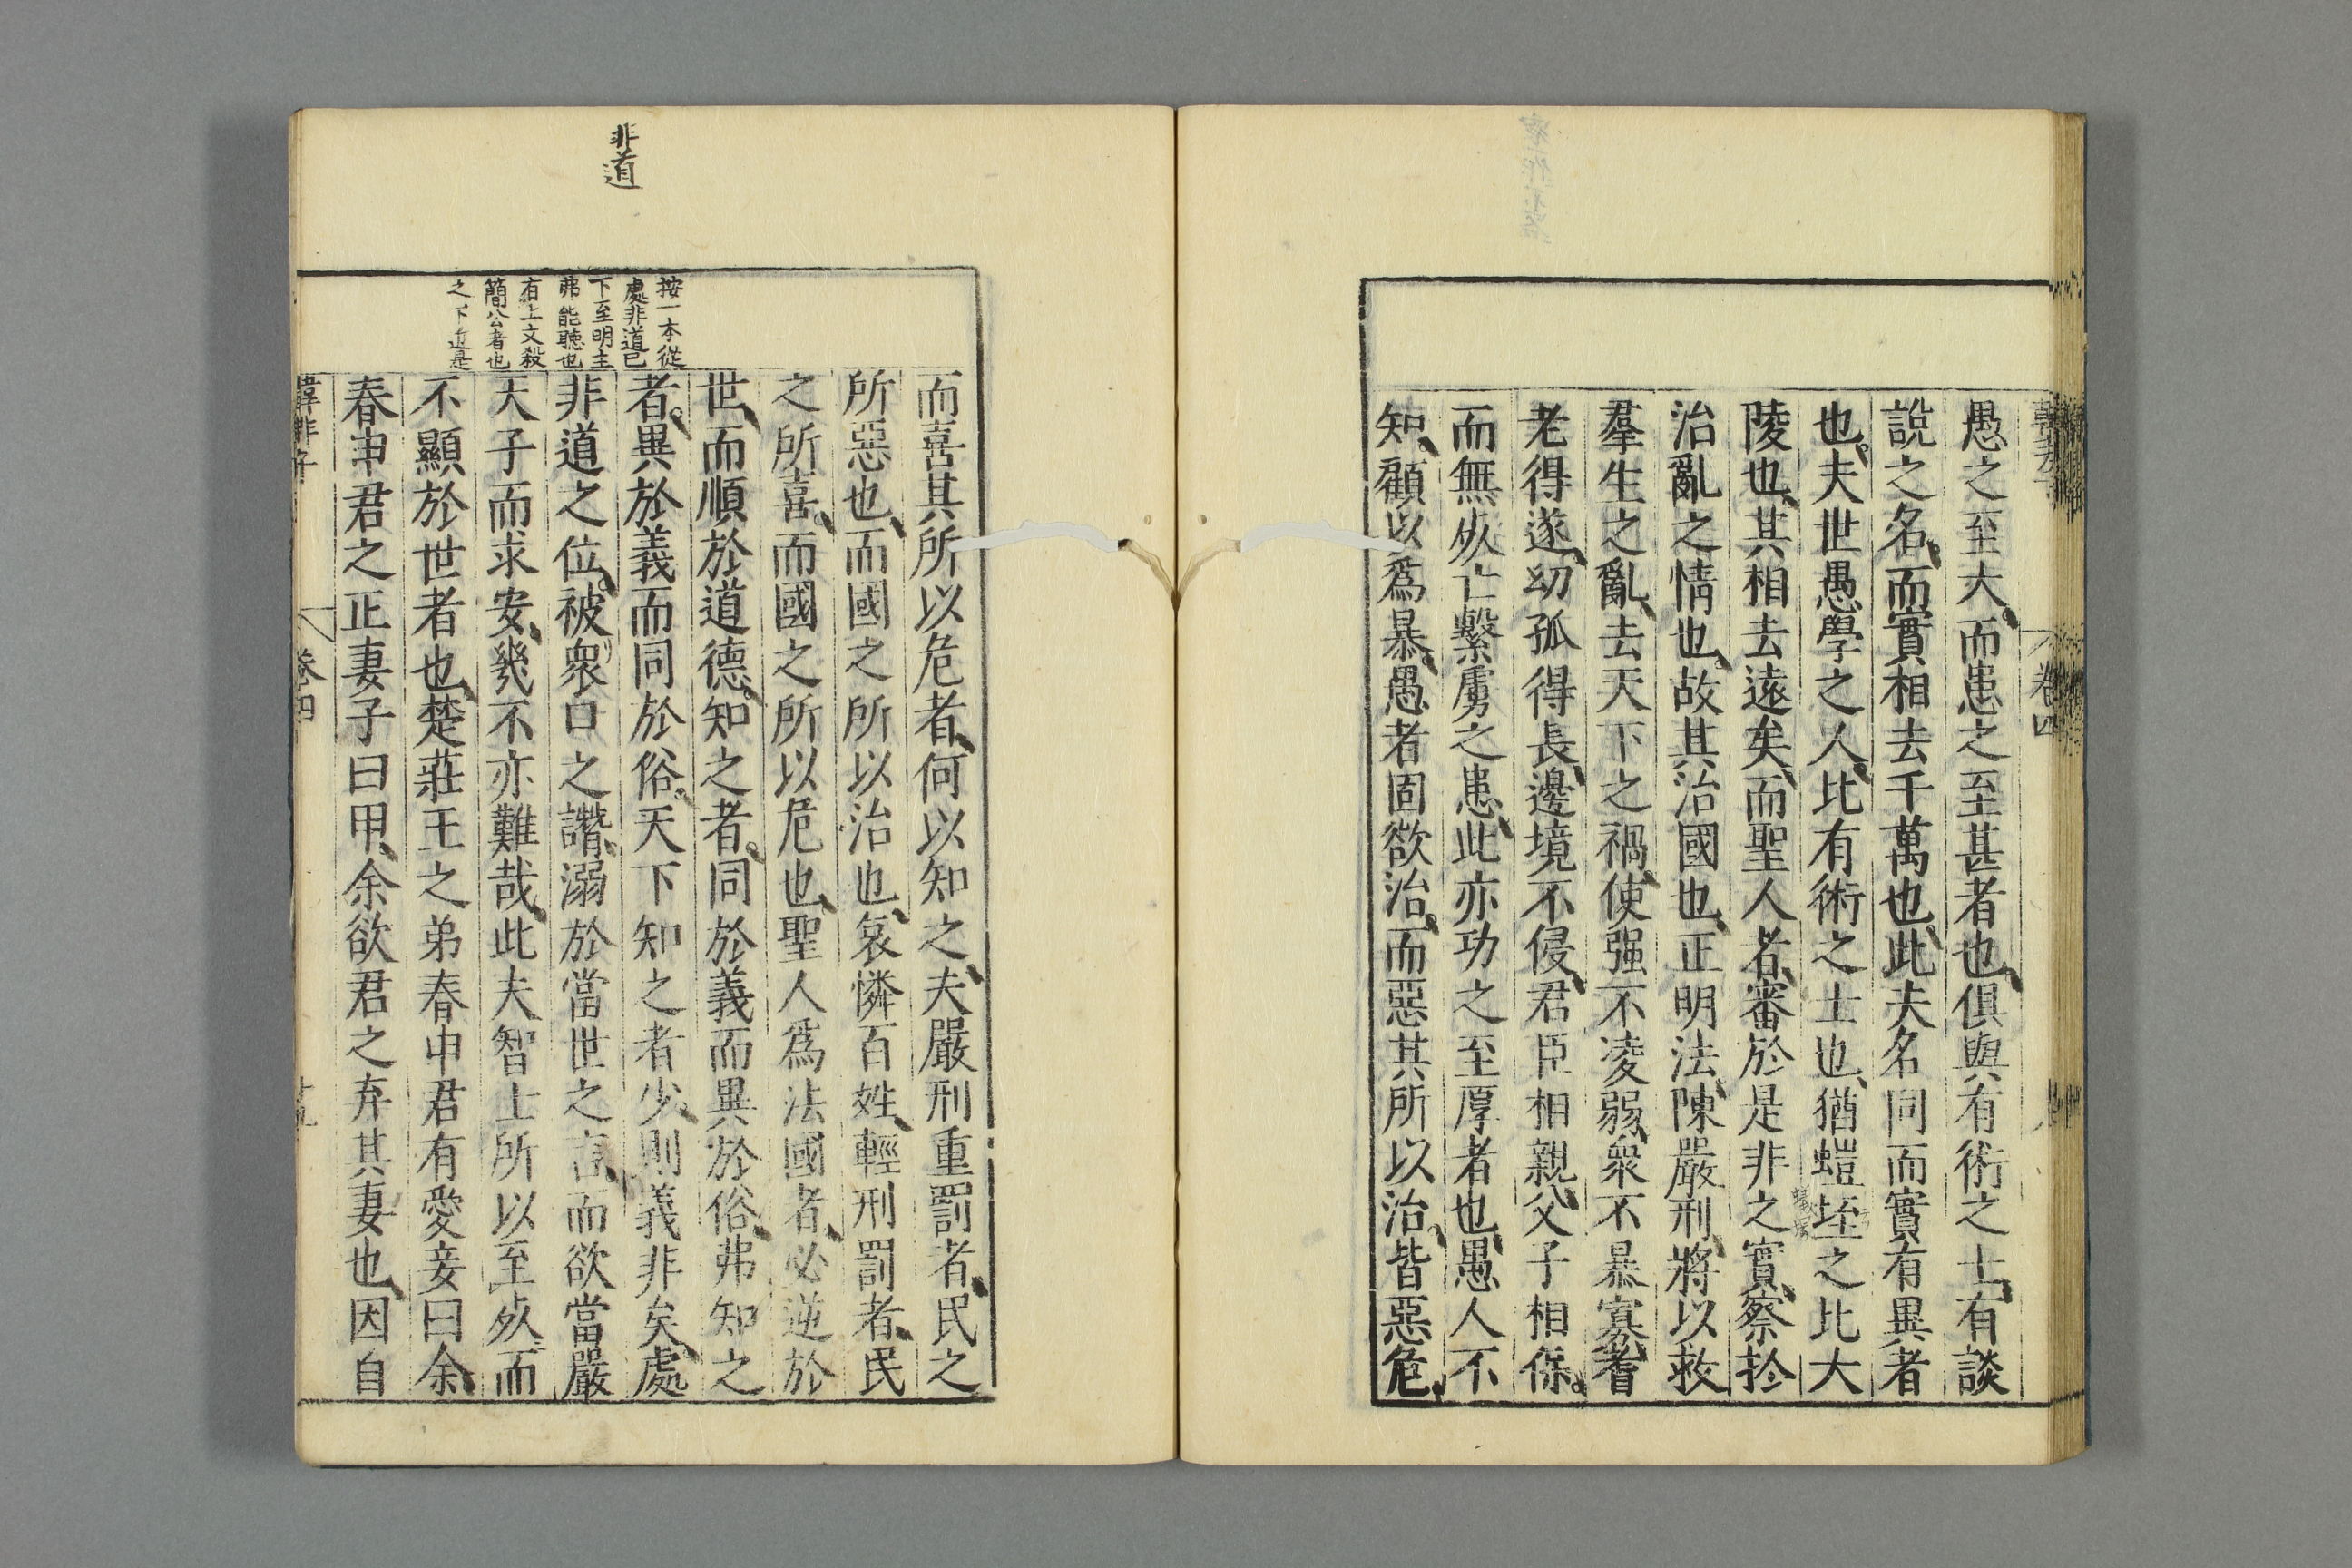 愚之至大而患之至甚者也俱與有術之士有談
說之名而實相去千萬也此夫名同而實有異者
也夫世愚學之人比有術之士也猶螘垤之比大
陵也其相去遠矣而聖人者審於是非之實察扵
治亂之情也故其治國也正明法陳嚴刑將以救
羣生之亂去天下之禍使强不凌弱衆不暴寡耆
老得遂幼孤得長邊境不侵君臣相親父子相保
而無死亡繫虜之患此亦功之至厚者也愚人不
知顧以爲暴愚者固欲治而惡其所以治皆惡危
卷四
而喜其所以危者何以知之夫嚴刑重罰者民之
所惡也而國之所以治也哀憐百姓輕刑罰者民
之所喜而國之所以危也聖人爲法國者必逆於
世而順於道德知之者同於義而異於俗弗知之
者異於義而同於俗天下知之者少則義非矣處
非道之位被衆口之譖溺於當世之言而欲當嚴
天子而求安幾不亦難哉此夫智士所以至死而
不顯於世者也楚莊王之弟春申君有愛妾曰余
春申君之正妻子曰甲余欲君之弃其妻也因自
非道
按一本從
處非道已
下至明主
弗能聽也
有上文殺
簡公者也
之下近是
韓非子
卷四